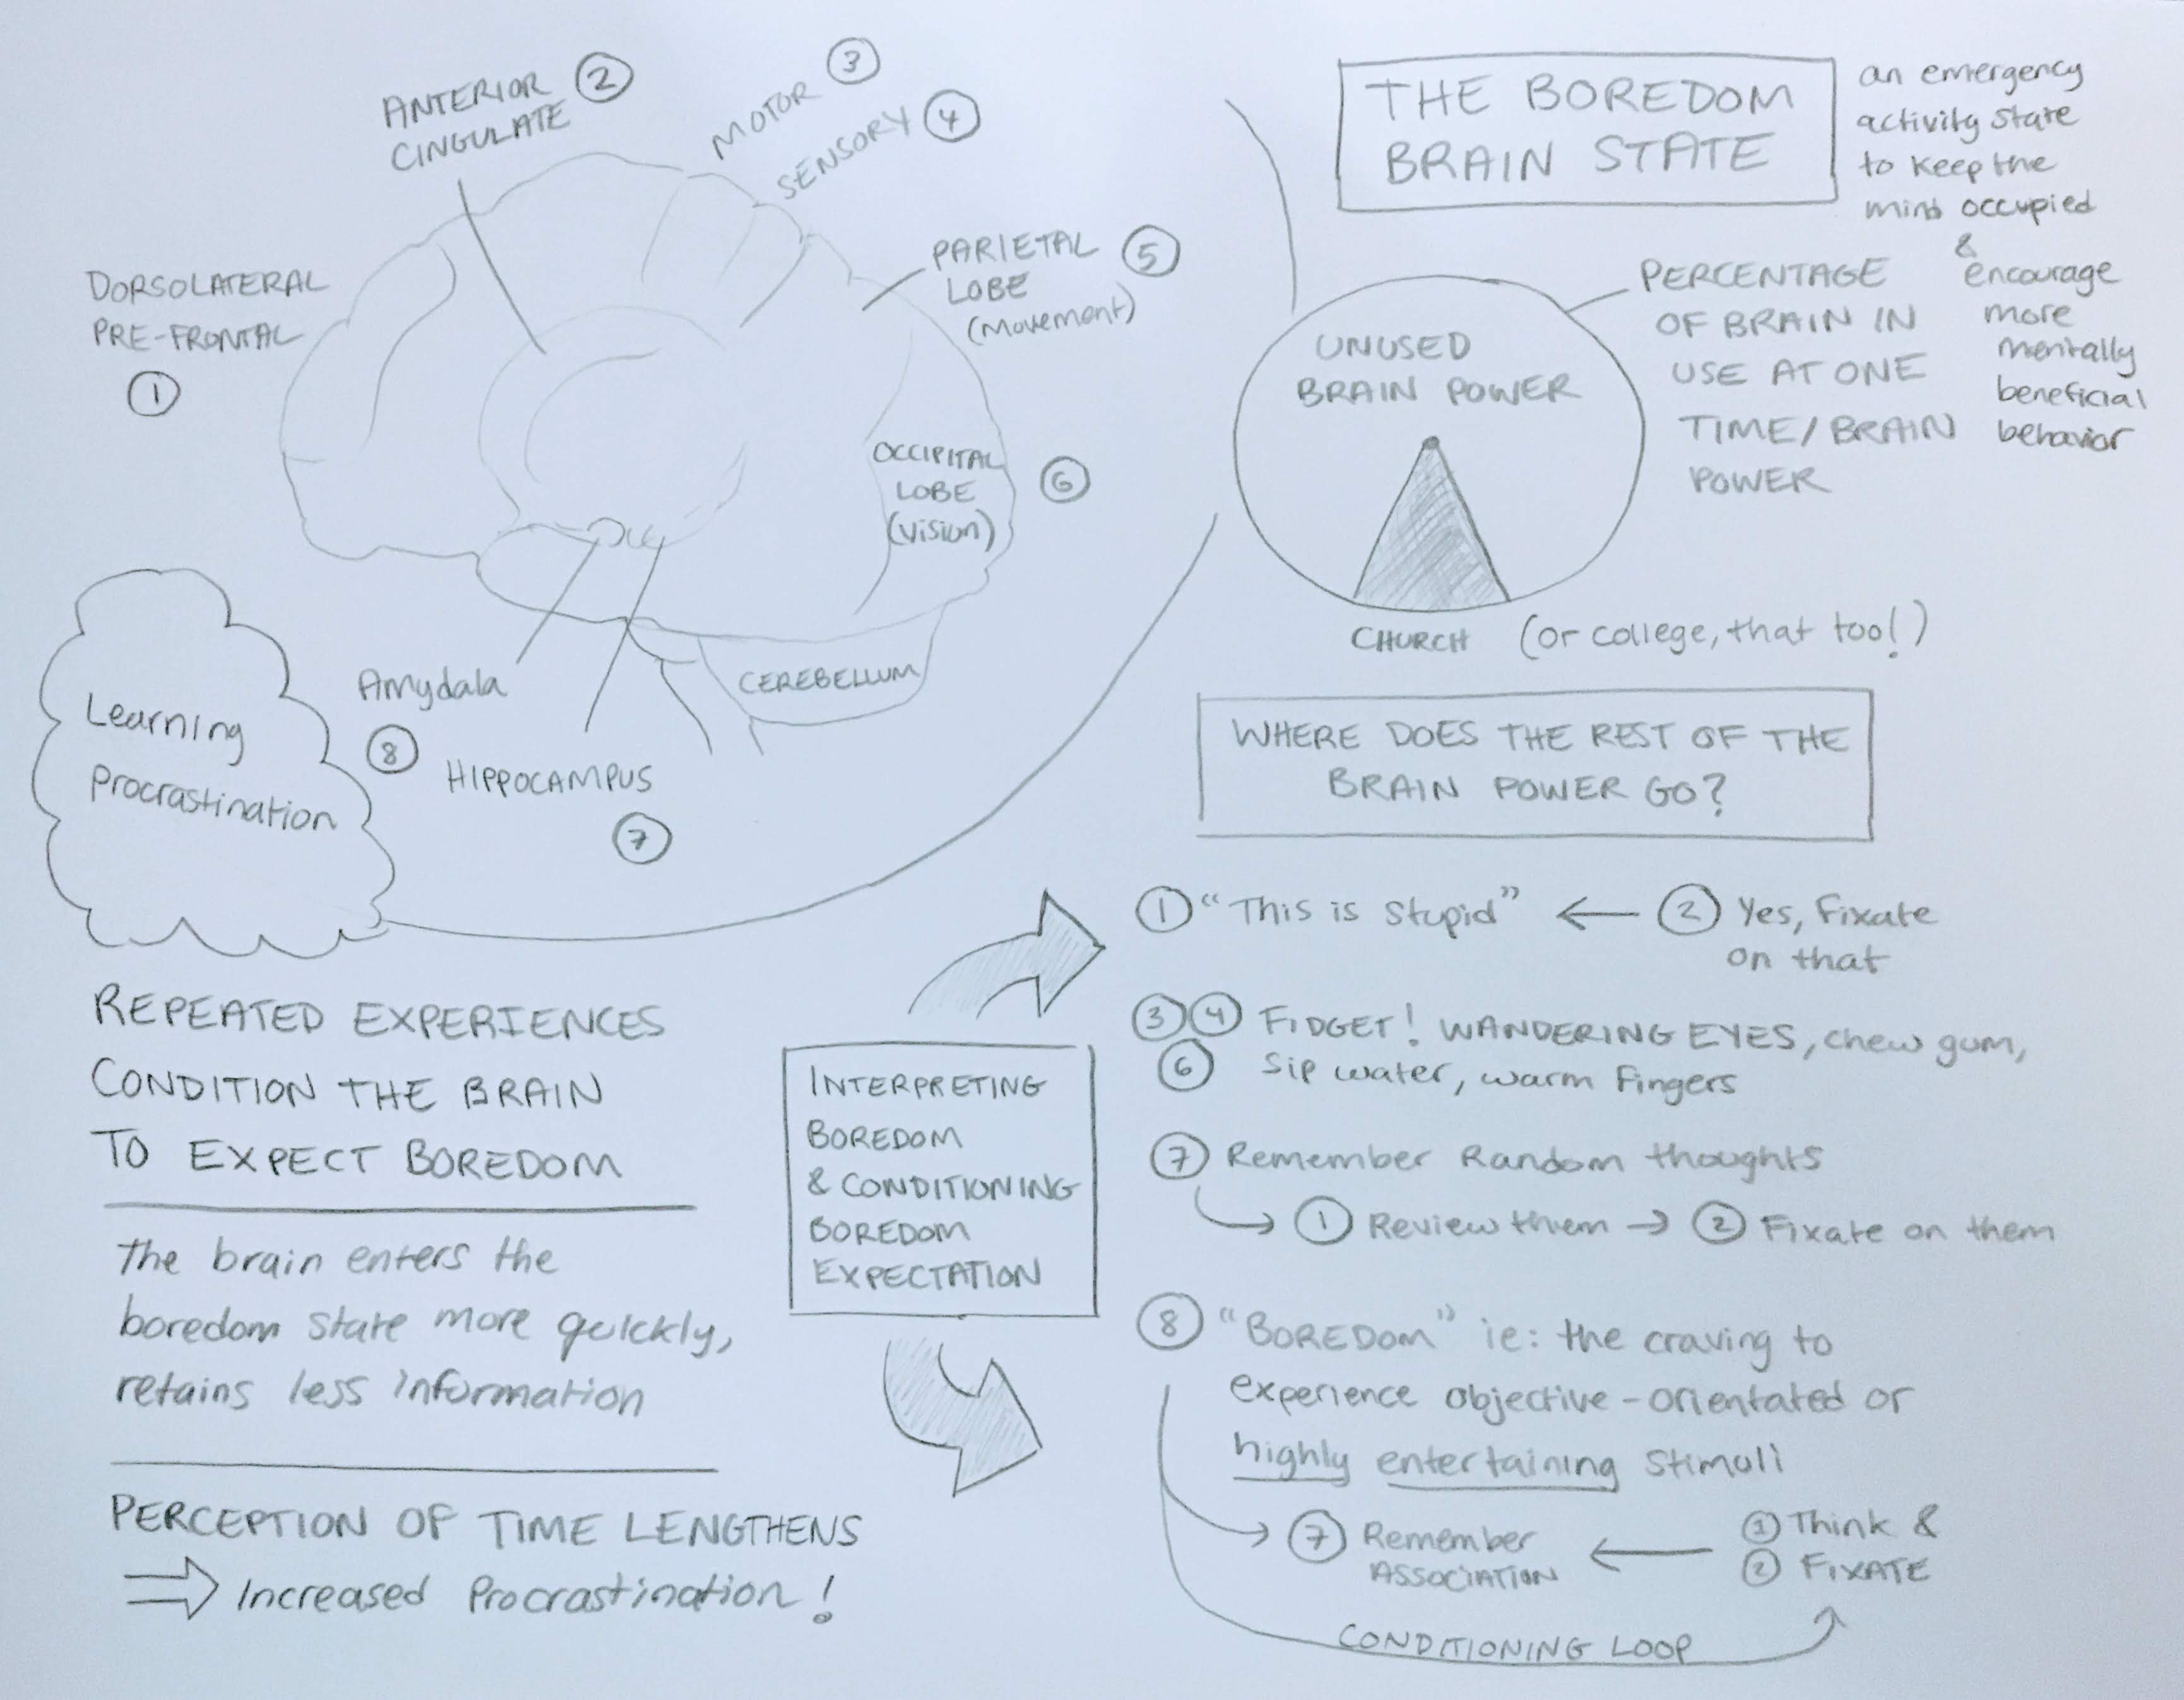 ANTERIOR 2
CINGULATE
MOTOR 3
SENSORY 4
PARIETAL 5
LOBE
(Movement)
DORSOLATERAL
PRE-FRONTAL
1
OCCIPITAL
LOBE
(Vision)
6
CEREBELLUM
Amydala
8
HIPPOCAMPUS
7
Learning
Procrastination
THE BOREDOM
BRAIN STATE
an emergency
activity state
to keep the
mind occupied
&
encourage
more
mentally
beneficial
behavior
PERCENTAGE
OF BRAIN IN
USE AT ONE
TIME/BRAIN
POWER
UNUSED
BRAIN POWER
CHURCH (or college, that too!)
WHERE DOES THE REST OF THE
BRAIN POWER GO?
REPEATED EXPERIENCES
CONDITION THE BRAIN
TO EXPECT BOREDOM
The brain enters the
boredom state more quickly,
retains less information
PERCEPTION OF TIME LENGTHENS
⇒ Increased Procrastination!
INTERPRETING
BOREDOM
& CONDITIONING
BOREDOM
EXPECTATION
1 "This is stupid" ← 2 Yes, Fixate
on that
3 4 FIDGET! WANDERING EYES, chew gum,
6 Sip water, warm fingers
7 Remember Random thoughts
→ 1 Review them → 2 Fixate on them
8 "BOREDOM" ie: the craving to
experience objective-orientated or
highly entertaining stimuli
→ 7 Remember ← 1 Think &
ASSOCIATION 2 FIXATE
CONDITIONING LOOP